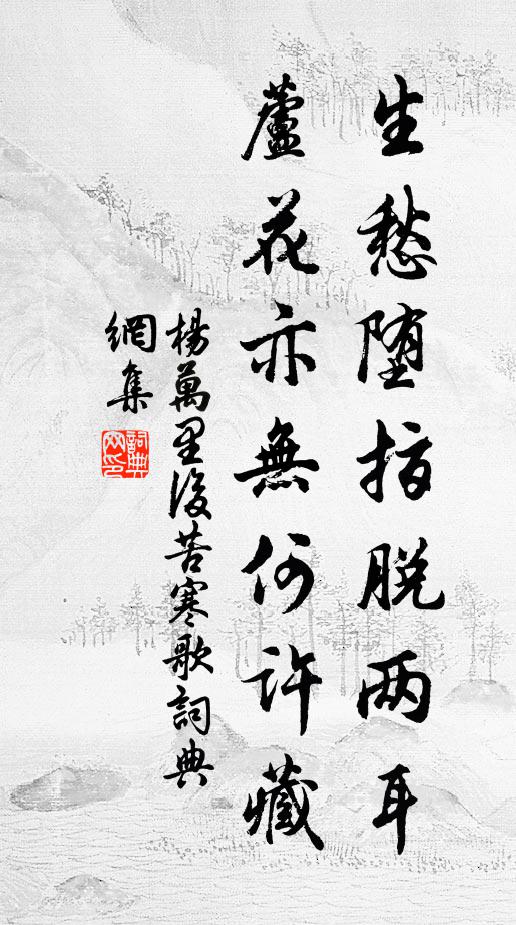 生愁堕指脱两耳
蘆花亦無何許藏
楊萬里後苦寒歌詞典
網集
詞典
网印